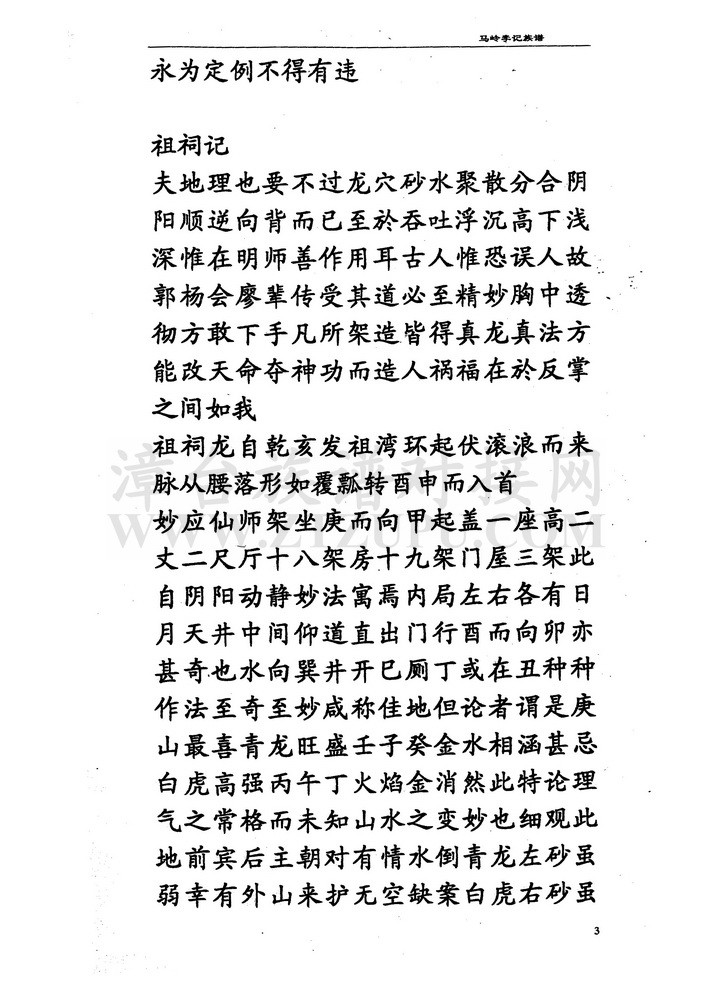 马岭李记族谱
永为定例不得有违
祖祠记
夫地理也要不过龙穴砂水聚散分合阴
阳顺逆向背而已至於吞吐浮沉高下浅
深惟在明师善作用耳古人惟恐误人故
郭杨会廖辈传受其道必至精妙胸中透
彻方敢下手凡所架造皆得真龙真法方
能改天命夺神功而造人祸福在於反掌
之间如我
祖祠龙自乾亥发祖湾环起伏滚浪而来
脉从腰落形如覆瓢转酉申而入首
妙应仙师架坐庚而向甲起盖一座高二
丈二尺厅十八架房十九架门屋三架此
自阴阳动静妙法寓焉内局左右各有日
月天井中间仰道直出门行酉而向卯亦
甚奇也水向巽井开巳厕丁或在丑种种
作法至奇至妙咸称佳地但论者谓是庚
山最喜青龙旺盛壬子癸金水相涵甚忌
白虎高强丙午丁火焰金消然此特论理
气之常格而未知山水之变妙也细观此
地前宾后主朝对有情水倒青龙左砂虽
弱幸有外山来护无空缺案白虎右砂虽
3
漳台族谱对接网
WWW.ZTZUPU.COM